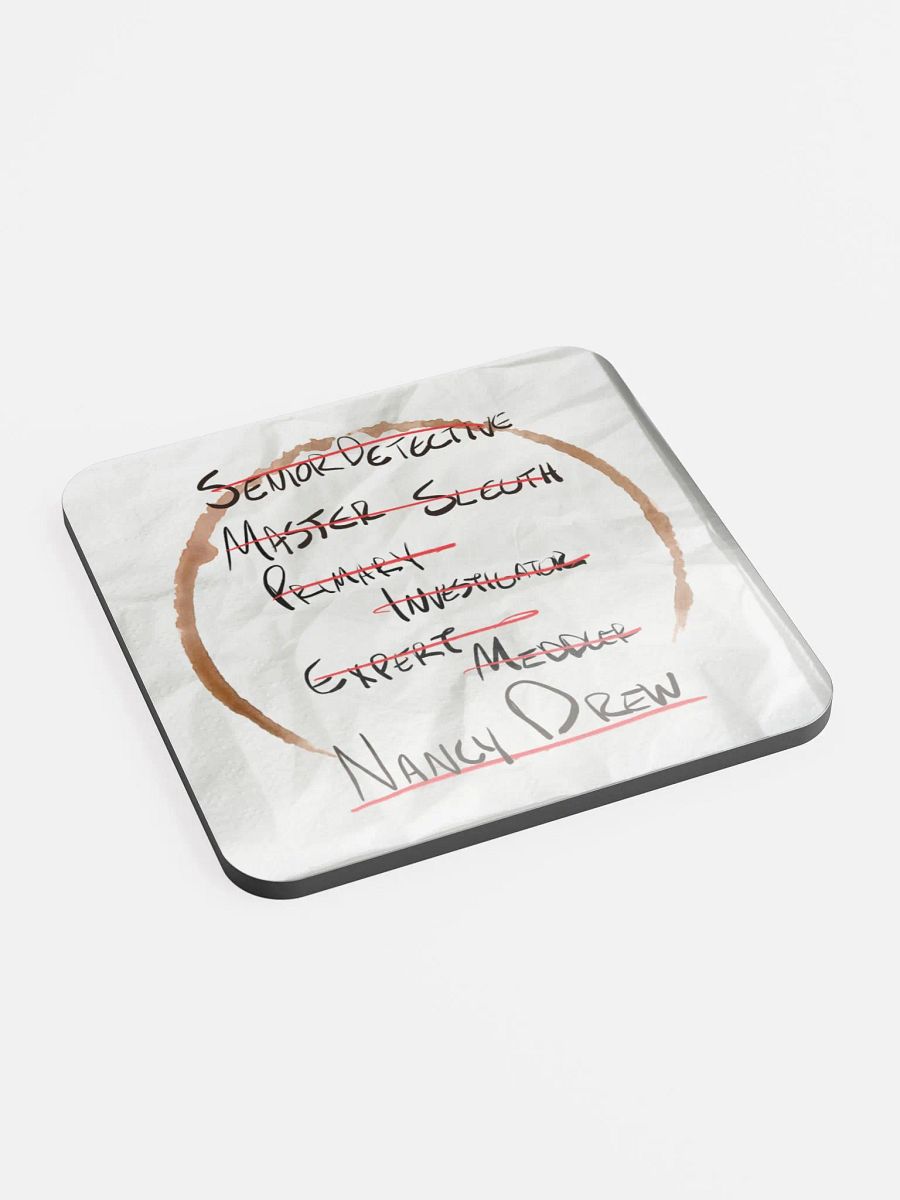 Senior Detective
Master Sleuth
Primary Investigator
Expert Meddler
Nancy Drew